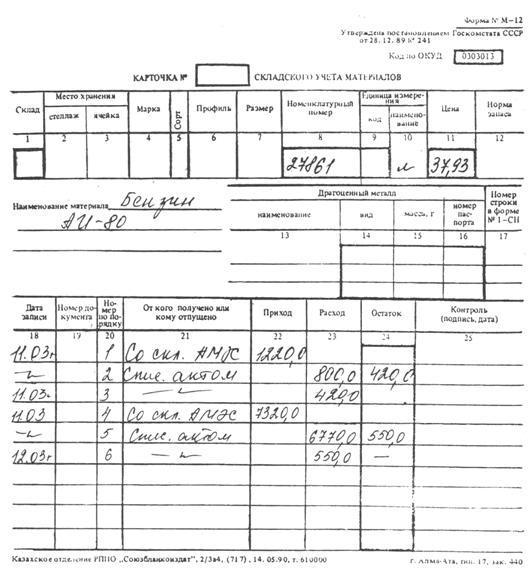 Форма № М-12
Утверждена постановлением Госкомстата СССР
от 28. 12. 89 № 241
Код по ОКУД 0303013
КАРТОЧКА № СКЛАДСКОГО УЧЕТА МАТЕРИАЛОВ
Склад Место хранения Марка Сорт Профиль Размер Номенклатурный номер Единица измерения Цена Норма запаса
стеллаж ячейка код наименование
1 2 3 4 5 6 7 8 9 10 11 12
27861 л 37,93
Наименование материала Бензин
АИ-80
Драгоценный металл Номер строки в форме № 1-СН
наименование вид масса, г номер паспорта
13 14 15 16 17
Дата записи Номер документа Номер по порядку От кого получено или кому отпущено Приход Расход Остаток Контроль (подпись, дата)
18 19 20 21 22 23 24 25
11.03г 1 Со скл. 1220,0
-"- 2 Спис. актом 800,0 420,0
11.03г 3 -"- 420,0
11.03 4 Со скл. 7320,0
-"- 5 Спис. актом 6770,0 550,0
12.03г 6 -"- 550,0 —
Казахское отделение РППО „Союзбланкоиздат", 2/3в4, (717) , 14. 05.90, т. 610000
г. Алма-Ата, тип. 17, зак. 440